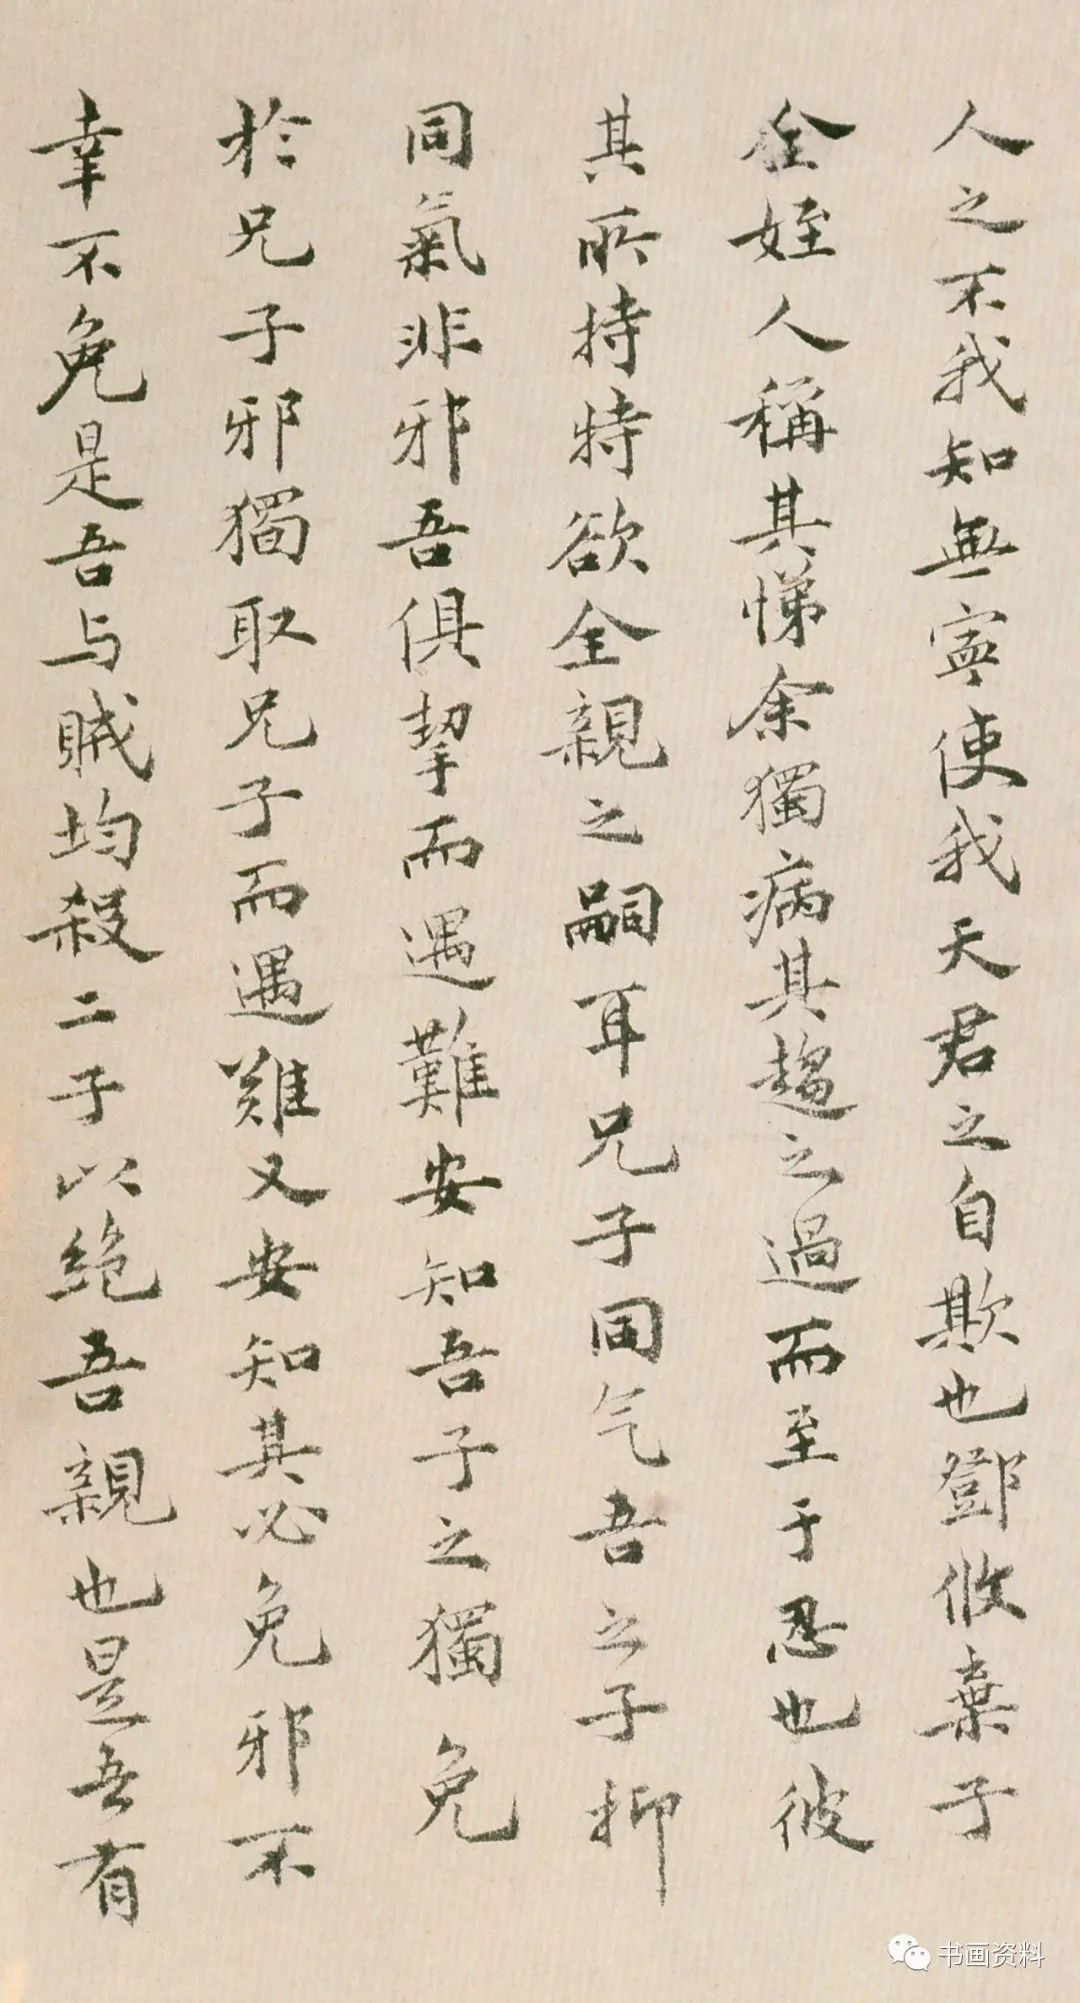 人之不我知無寧使我天君之自欺也鄧攸棄子
全姪人稱其悌余獨病其趨之過而至于忍也彼
其所持特欲全親之嗣耳兄子同气吾之子抑
同氣非邪吾俱挈而遇難安知吾子之獨免
於兄子邪獨取兄子而遇難又安知其必免邪不
幸不免是吾与賊均殺二子以绝吾親也是吾有
书画资料